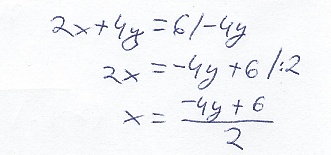 2x+4y=6/-4y
2x=-4y+6/:2
x=\frac{-4y+6}{2}